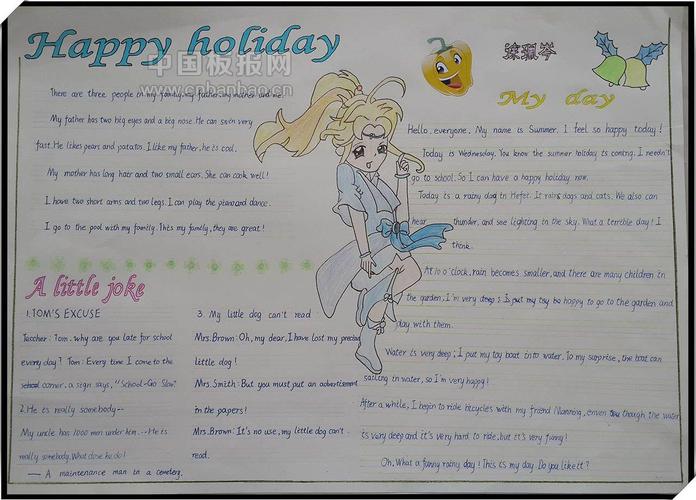 Happy holiday
中国板报网
www.cnbanbao.cn
There are three people in my family, my father, my mother and me.
My father has two big eyes and a big nose. He can swim very
fast. He likes pears and potatos. I like my father, he is cool.
My mother has long hair and two small ears. She can cook well!
I have two short arms and two legs. I can play the piano and dance.
I go to the pool with my family. This my family, they are great!
A little joke
1. TOM'S EXCUSE
Teacher: Tom. why are you late for school
every day? Tom: Every time I come to the
school corner, a sign says, "School-Go Slow"
2. He is really somebody--
My uncle has 1000 men under him. --He is
really somebody. What dose he do?
— A maintenance man in a cemetery.
3. My little dog can't read
Mrs. Brown: Oh, my dear, I have lost my precious
little dog!
Mrs Smith: But you must put an advertisement
in the papers!
Mrs. Brown: It's no use, my little dog can't
read.
My day
Hello, everyone, My name is Summer. I feel so happy today!
Today is Wednesday. You know the summer holiday is coming. I needn't
go to school. So I can have a happy holiday now.
Today is a rainy dag in Hefei. It rains dogs and cats. We also can
hear thunder, and see lighting in the sky. What a terrible day! I
think.
At 10 o'clock, rain becomes smaller, and there are many children in
the garden, I'm very I put my toy be happy to go to the garden and
play with them.
Water is very deep; I put my toy boat into water. To my surprise, the boat can
sailing in water, so I'm very happy!
After a while, I begin to ride bicycles with my friend though the water
is very deep and it's very hard to ride, but it's very funny!
Oh, What a funny rainy day! This is my day. Do you like it?